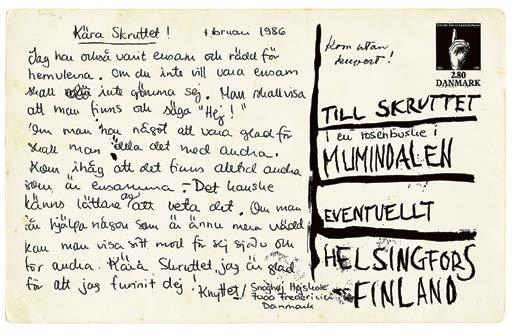 Kära Skruttet!
februari 1986
Jag har också varit ensam och rädd för
hemulerna. Om du inte vill vara ensam
skall inte gömma sej. Man skall visa
att man finns och säga "Hej!"
Om man har något att vara glad för
skall man dela det med andra.
Kom ihåg att det finns alltid andra
som är ensamma. - Det kanske
känns lättare av att veta det. Om man
än hjälpa någon som är ännu mera rädd
kan man visa sitt mod för sej själv och
för andra. Kära Skruttet, jag är glad
för att jag funnit dej. Knyttet/
Snoghøj Højskole
7000 Fredericia
Danmark
Kom utan
kuvert!
2.80
DANMARK
TILL SKRUTTET
i en rosenbuske i
MUMINDALEN
EVENTUELLT
HELSINGFORS
FINLAND